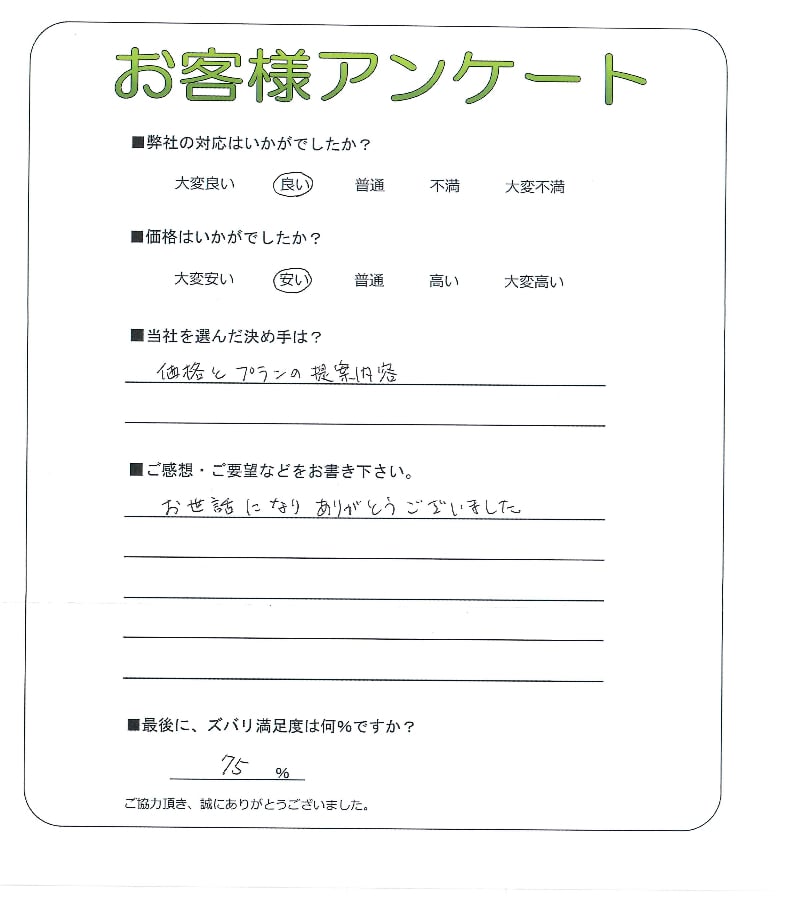 お客様アンケート
■弊社の対応はいかがでしたか?
大変良い 良い 普通 不満 大変不満
■価格はいかがでしたか?
大変安い 安い 普通 高い 大変高い
■当社を選んだ決め手は?
価格とプランの提案内容
■ご感想・ご要望などをお書き下さい。
お世話になりありがとうございました
■最後に、ズバリ満足度は何%ですか?
75 %
ご協力頂き、誠にありがとうございました。